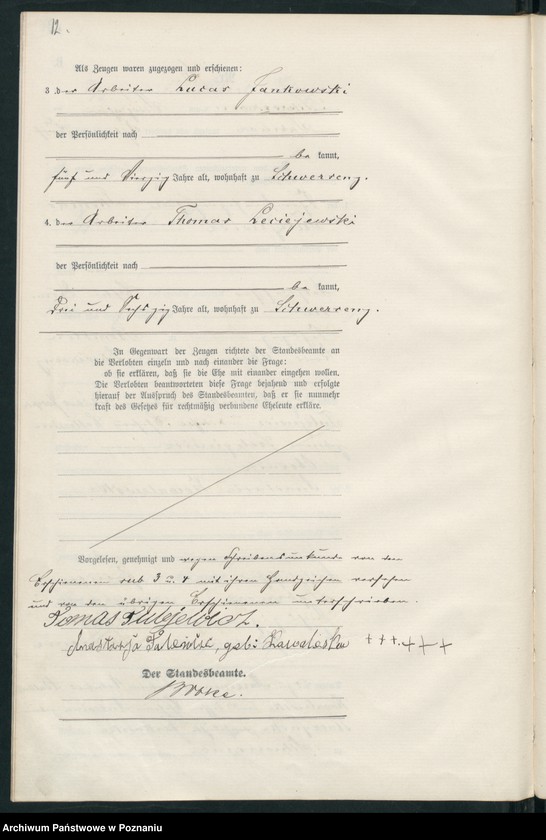 12.
Als Zeugen waren zugezogen und erschienen:
3. der Arbeiter Lucas Jankowski
der Persönlichkeit nach
be kannt,
fünf und vierzig Jahre alt, wohnhaft zu Schwersenz.
4. der Arbeiter Thomas Leciejewski
der Persönlichkeit nach
be kannt,
drei und sechszig Jahre alt, wohnhaft zu Schwersenz.
In Gegenwart der Zeugen richtete der Standesbeamte an
die Verlobten einzeln und nach einander die Frage:
ob sie erklären, daß sie die Ehe mit einander eingehen wollen.
Die Verlobten beantworteten diese Frage bejahend und erfolgte
hierauf der Ausspruch des Standesbeamten, daß er sie nunmehr
kraft des Gesetzes für rechtmäßig verbundene Eheleute erkläre.
Vorgelesen, genehmigt und wegen Schreibensunkunde von den
Erschienenen sub 3 u. 4 mit ihren Handzeichen versehen
und von den übrigen Erschienenen unterschrieben.
Tomas
geb: +++ +++
Der Standesbeamte.
Archiwum Państwowe w Poznaniu
szukajwarchiwach.gov.pl